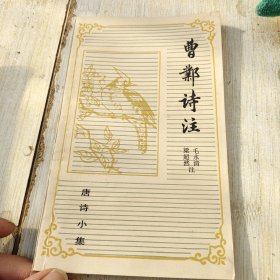 曹鄴诗注
梁超然
毛水清 注
唐诗小集